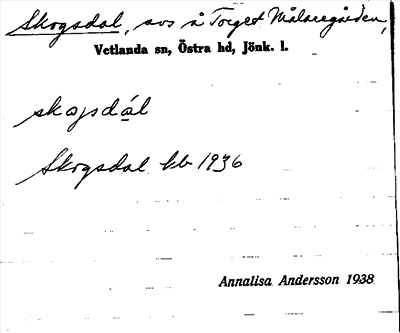 Skogsdal, avs å Torget Målaregården,
Vetlanda sn, Östra hd, Jönk. l.
skogsdál
Skogsdal kb 1936
Annalisa Andersson 1938